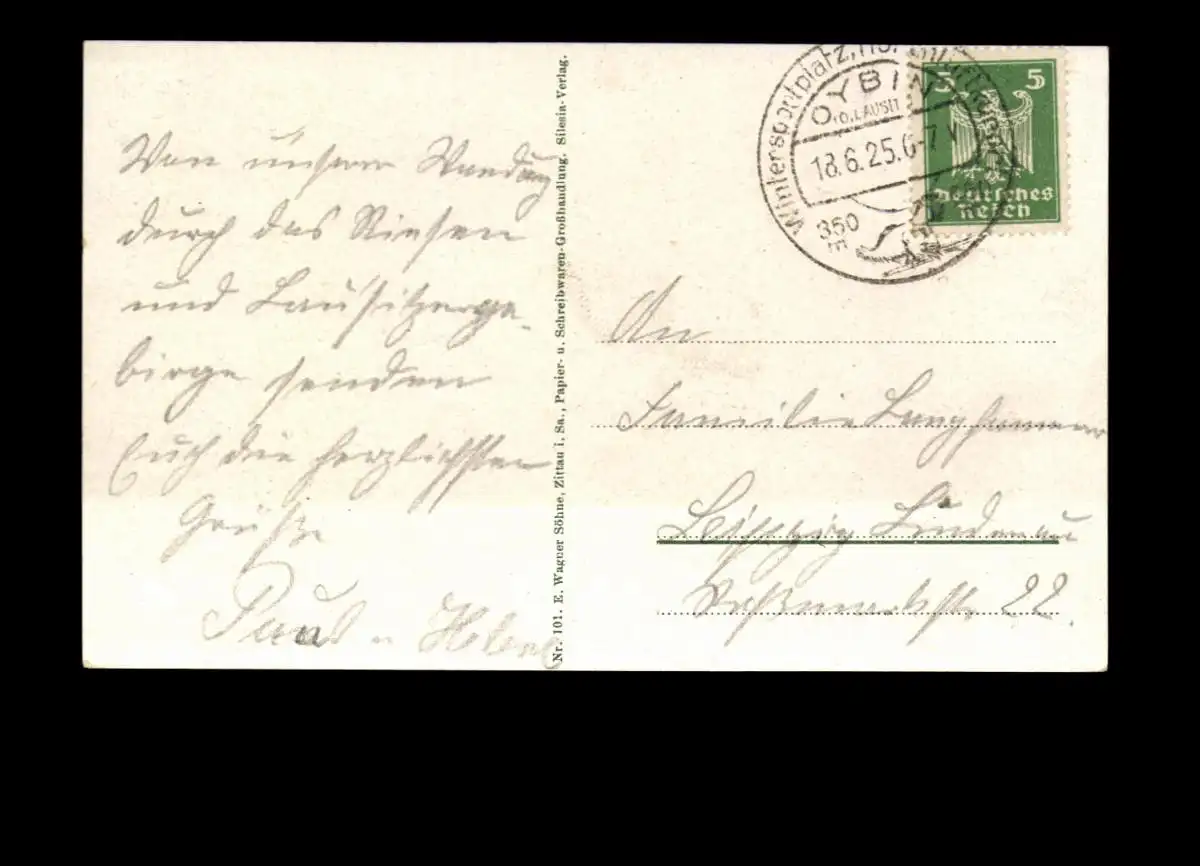 Von unserer Wandrung
durch das Riesen
und Lausitzerge-
birge senden
Euch die herzlichsten
Grüße
Paul u.
Nr. 101. E. Wagner Söhne, Zittau i. Sa., Papier- u. Schreibwaren-Großhandlung. Silesia-Verlag.
Wintersportplatz,
OYBIN
18.6.25.6-7V
350
5 5
Deutsches
Reich
An
Familie Langhammer
Leipzig Lindenau
22.